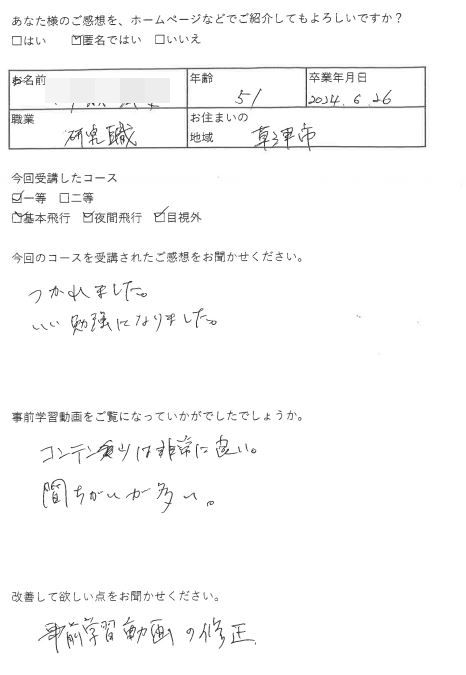 あなた様のご感想を、ホームページなどでご紹介してもよろしいですか？
□はい ☑匿名ではい □いいえ
お名前
年齢 51
卒業年月日 2024.6.26
職業 研究職
お住まいの地域 草津市
今回受講したコース
☑一等 □二等
☑基本飛行 ☑夜間飛行 ☑目視外
今回のコースを受講されたご感想をお聞かせください。
つかれました。
いい勉強になりました。
事前学習動画をご覧になっていかがでしたでしょうか。
コンテンツは非常に良い。
間ちがいが多い。
改善して欲しい点をお聞かせください。
事前学習動画の修正